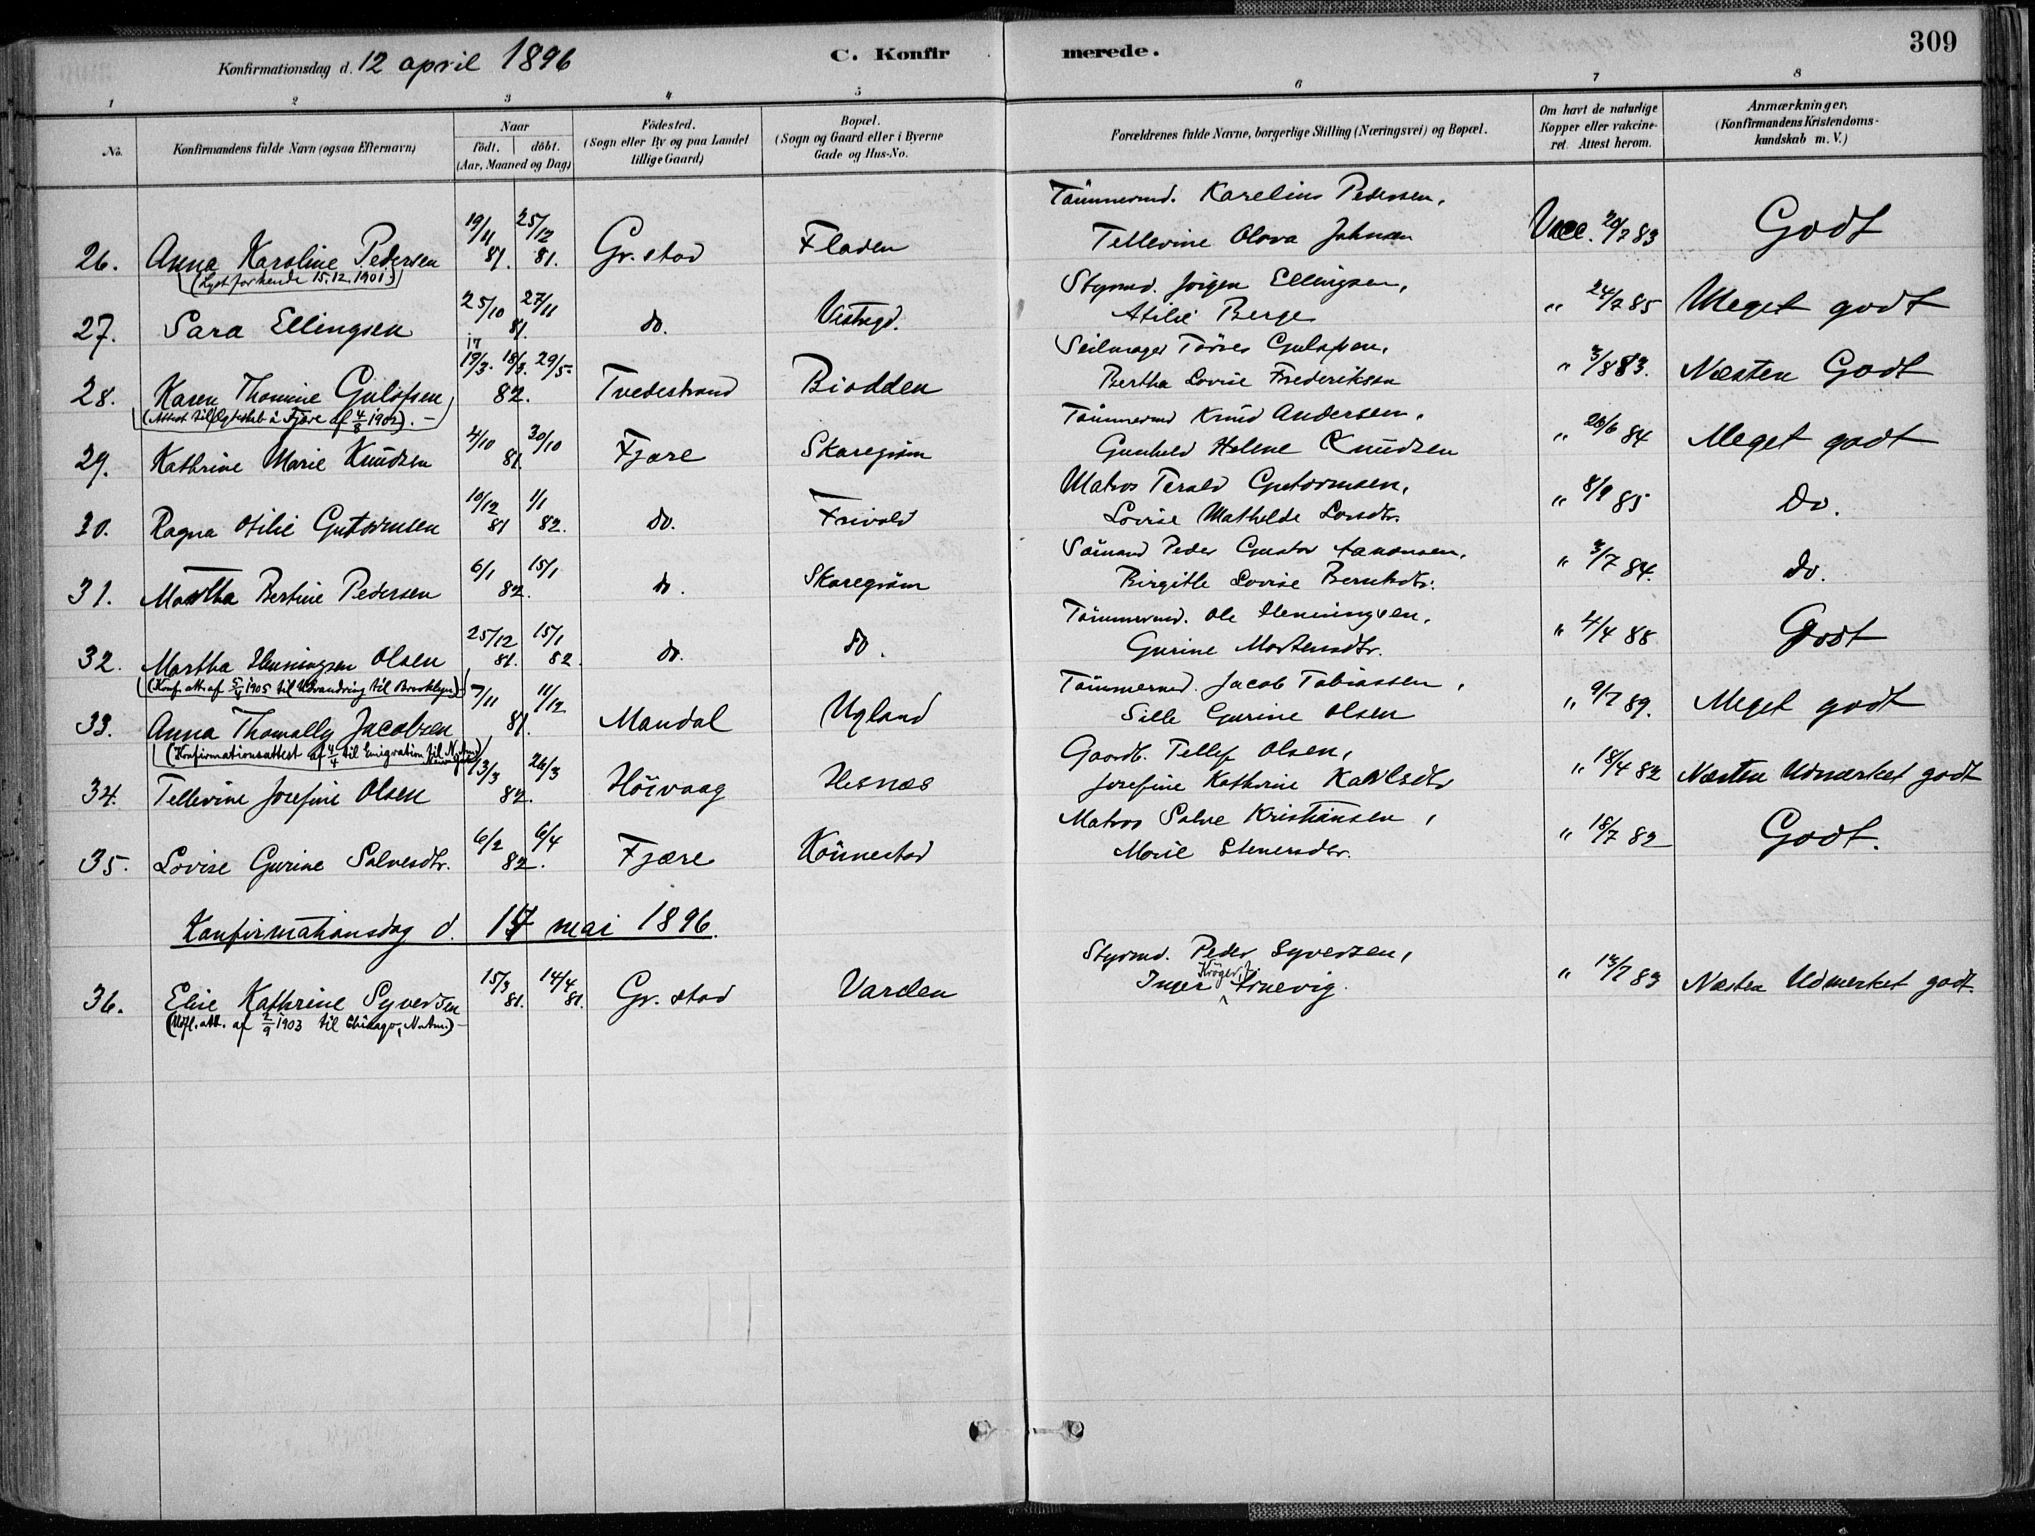 309
Konfirmationsdag d. 12 april 1896
C. Konfirmerede.
1 2 3 4 5 6 7 8
No.
Konfirmandens fulde Navn (ogsaa Efternavn)
Naar
födt. döbt.
(Aar, Maaned og Dag)
Födested.
(Sogn eller By og paa Landet
tillige Gaard)
Bopæl.
(Sogn og Gaard eller i Byerne
Gade og Hus-No.
Forældrenes fulde Navne, borgerlige Stilling (Næringsvei) og Bopæl.
Om havt de naturlige
Kopper eller vakcine-
ret. Attest herom.
Anmærkninger,
(Konfirmandens Kristendoms-
kundskab m. V.)
26. Anna Karoline Pedersen 19/11 81. 25/12 81. Gr.stad Fladen Tömmermd. Karelius Pedersen,
Tellevine Olava Johnsen Vacc. 20/7 83 Godt
(Lyst for hende 15.12.1901.)
27. Sara Ellingsen 25/10 27/11 81. do. Vestregd. Styrmd. Jörgen Ellingsen,
Atilie Berge " 24/7 85 Meget godt
28. Karen Thomine Gulofsen 19/3. 29/5. 82. Tvedestrand Biodden Seilmager Törres Gulofsen,
Bertha Lovise Frederiksen " 3/8 83. Næsten Godt
(Attest til Ægteskab i Fjære af 4/8 1902). -
29. Kathrine Marie Knudsen 4/10 30/10 81. Fjære Skaregröm Tömmermd Knud Andersen,
Gunhild Helene Knudsen " 26/6 84 Meget godt
30. Ragna Otilie Gutormsen 10/12 81 1/1 82. do. Frivold Matros Terald Gutormsen,
Lovise Mathilde Larsdtr. " 8/9 85 Do.
31. Martha Bertine Pedersen 6/1 15/1 82. do. Skaregröm Sömand Peder Gustav Aanonsen,
Birgitte Lovise Berntsdtr. " 3/7 84. do.
32. Martha Henningsen Olsen 25/12 81. 15/1 82. do. do. Tömmermd. Ole Henningsen,
Gurine Mortensdtr. " 4/4 88 Godt
(Konf. att. af 5/4 1905 til Udvandring til Brooklyn)
33. Anna Thomally Jacobsen 7/11 11/12 81. Mandal Ugland Tömmermd. Jacob Tobiassen,
Sille Gurine Olsen " 9/7 89. Meget godt
(Konfirmationsattest af 4/4 til Emigration til
34. Tellevine Josefine Olsen 13/3 26/3 82. Höivaag Hesnæs Gaardb. Tellef Olsen,
Josefine Kathrine Karlsdtr " 18/4 82 Næsten Udmærket godt
35. Lovise Gurine Salvesdtr. 6/2 6/4 82. Fjære Könnestad Matros Salve Kristiansen,
Marie Stenersdtr. " 18/7 82 Godt.
Konfirmationsdag d. 17 mai 1896.
36. Elise Kathrine Syversen 15/3 81. 14/4 81. Gr. stad Varden Styrmd. Peder Syversen,
Inger Kröger Arnevig. " 13/7 83 Næsten Udmerket godt.
(Udfl. att. af 2/9 1903 til Chicago, N.Am.) -